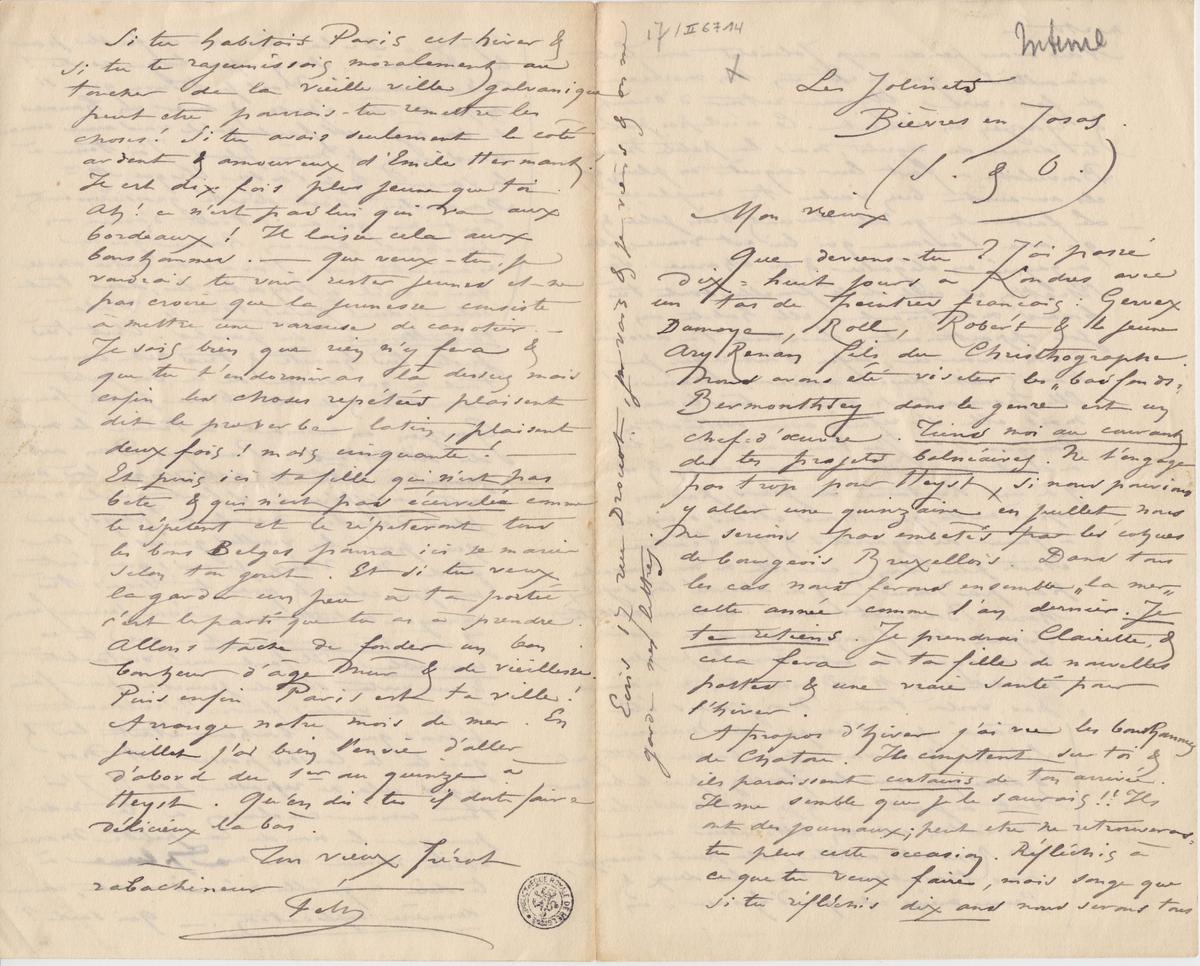 17/II 6714
Intime
Les Jolinets
Bièvres en Josas.
(S. & O.)
Mon vieux
Que deviens-tu ? J'ai passé
dix-huit jours à Londres avec
un tas de peintres français : Gervex
Damoye, Roll, Robert & le jeune
Ary Renan fils du Christhographe.
Nous avons été visiter les „bas fonds.
Bermonthsey dans le genre est un
chef-d'œuvre. Tiens moi au courant
de tes projets balnéaires. Ne t'engage
pas trop pour Heyst, si nous pouvions
y aller une quinzaine en juillet nous
ne serions pas embêtés par les cohues
de bourgeois Bruxellois. Dans tous
les cas nous ferons ensemble „la mer„
cette année comme l'an dernier. Je
te retiens. Je prendrai Clairette, &
cela fera à ta fille de nouvelles
pattes & une vraie santé pour
l'hiver.
A propos d'hiver j'ai vu les bonshommes
de Chatou. Ils comptent sur toi &
ils paraissent certains de ton arrivée.
Il me semble que je le saurais !! Ils
ont des journaux ; peut etre ne retrouveras-
tu plus cette occasion. Réfléchis à
ce que tu veux faire, mais songe que
si tu réfléchis dix ans nous serons tous
Si tu habitois Paris cet hiver &
si tu te rajeunissais moralement au
toucher de la vieille ville galvanique
peut etre pourrais-tu remettre les
choses ! Si tu avais seulement le coté
ardent & amoureux d'Emile Hermant !
Il est dix fois plus jeune que toi.
Ah ! ce n'est pas lui qui va aux
bordeaux ! Il laisse cela aux
bonshommes. — que veux-tu, je
voudrais te voir rester jeune et ne
pas croire que la jeunesse consiste
à mettre une vareuse de canotier. —
Je sais bien que rien n'y fera &
que tu t'endormiras là dessus mais
enfin les choses repétées plaisent
dit le proverbe latin, plaisent
deux fois ! mais cinquante ! —
Et puis ici ta fille qui n'est pas
bete & qui n'est pas écervelée comme
le répètent et le répèteront tous
les bons Belges pourra ici se marier
selon ton gout. Et si tu veux
la garder un peu à ta portée
c'est le parti que tu as à prendre.
Allons tâche de fonder un bon
bonheur d'âge mur & de vieillesse.
Puis enfin Paris est ta ville !
Arrange notre mois de mer. En
Juillet j'ai bien l'envie d'aller
d'abord du 1er au quinze à
Heyst. Qu'en dis-tu il doit faire
délicieux là bas.
Ton vieux frérot
rabachineur
Fély
Ecris 17 rue Drouot, je vais & je viens & on me
garde mes lettres.
BIBLIOTHÈQUE ROYALE DE BELGIQUE